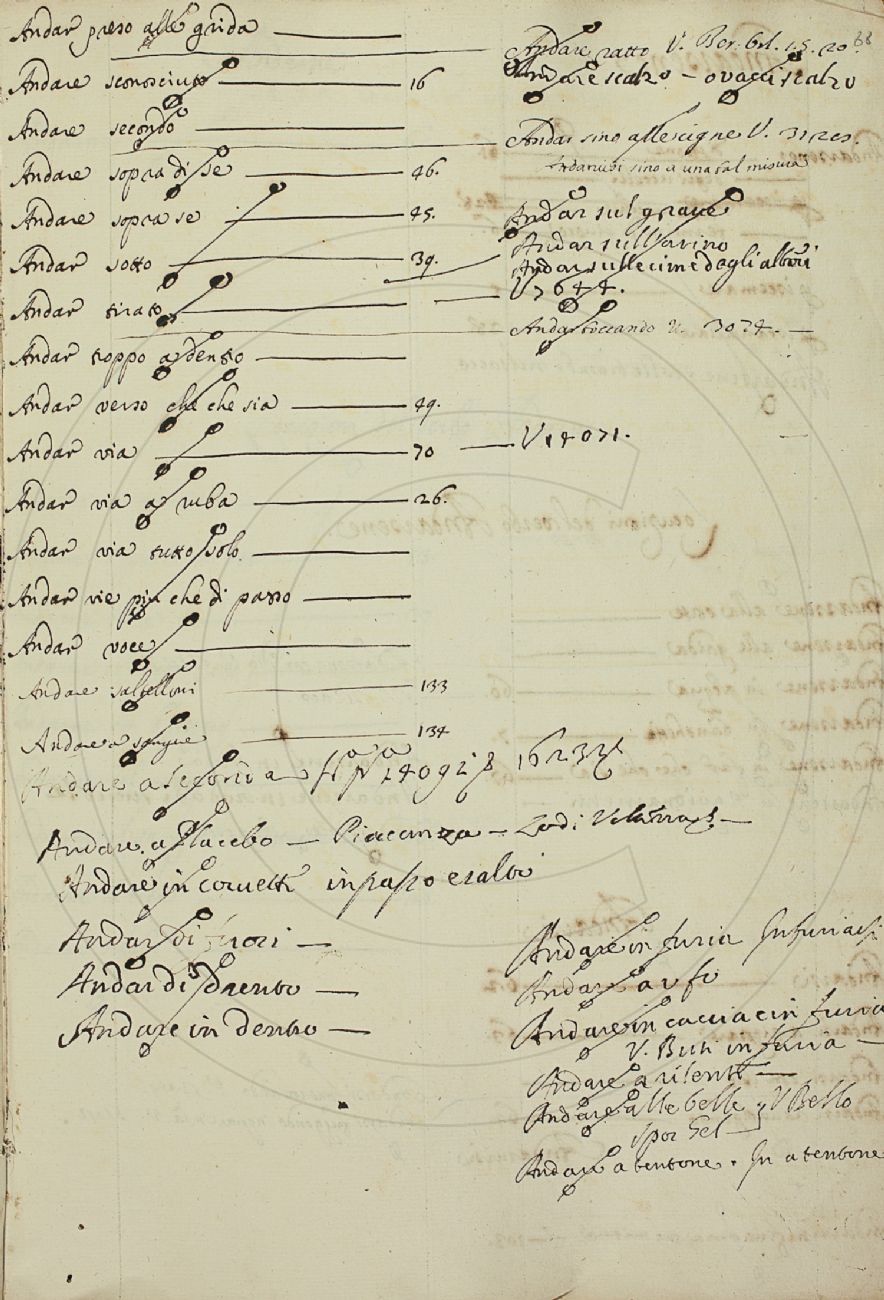 Andar preso alle grida
Andare sconosciuto 16
Andare secondo
Andare sopra di se 46.
Andare sopra se 45.
Andar sotto 39.
Andar tirato
Andar troppo a dentro
Andar verso che che sia 49.
Andar via 70
Andar via a ruba 26.
Andar via tutto solo
Andar vie più che di passo
Andar voce
Andare saltelloni 133
Andare a sangue 134
Andare a seconda
Andare a Placebo — Piacenza — Lodi
Andare in corvette in passo e salti
Andar di fuori —
Andar di drento —
Andare in dentro —
68
Andare ratto V. Ber. 1.5.20
Andare scalzo — o vaca scalzo
Andar sino alle cigne V.
Andarvibi sino a una tal misura
Andar sul grave
Andar sull'
Andar sulle cime degli alberi
V 7644.
Andar toccando V. 3074. —
V 14071.
Andare in furia Infuriarsi
Andare a ufo
Andare in caccia e in furia
V. in furia —
Andare a rilente —
Andare alle belle V Bello
Andare a tentone. In a tentone